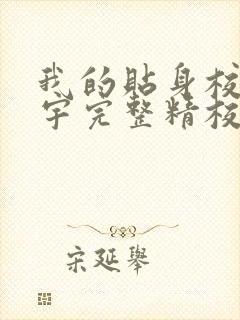 我的貼身校
宇完整精校
宋延舉